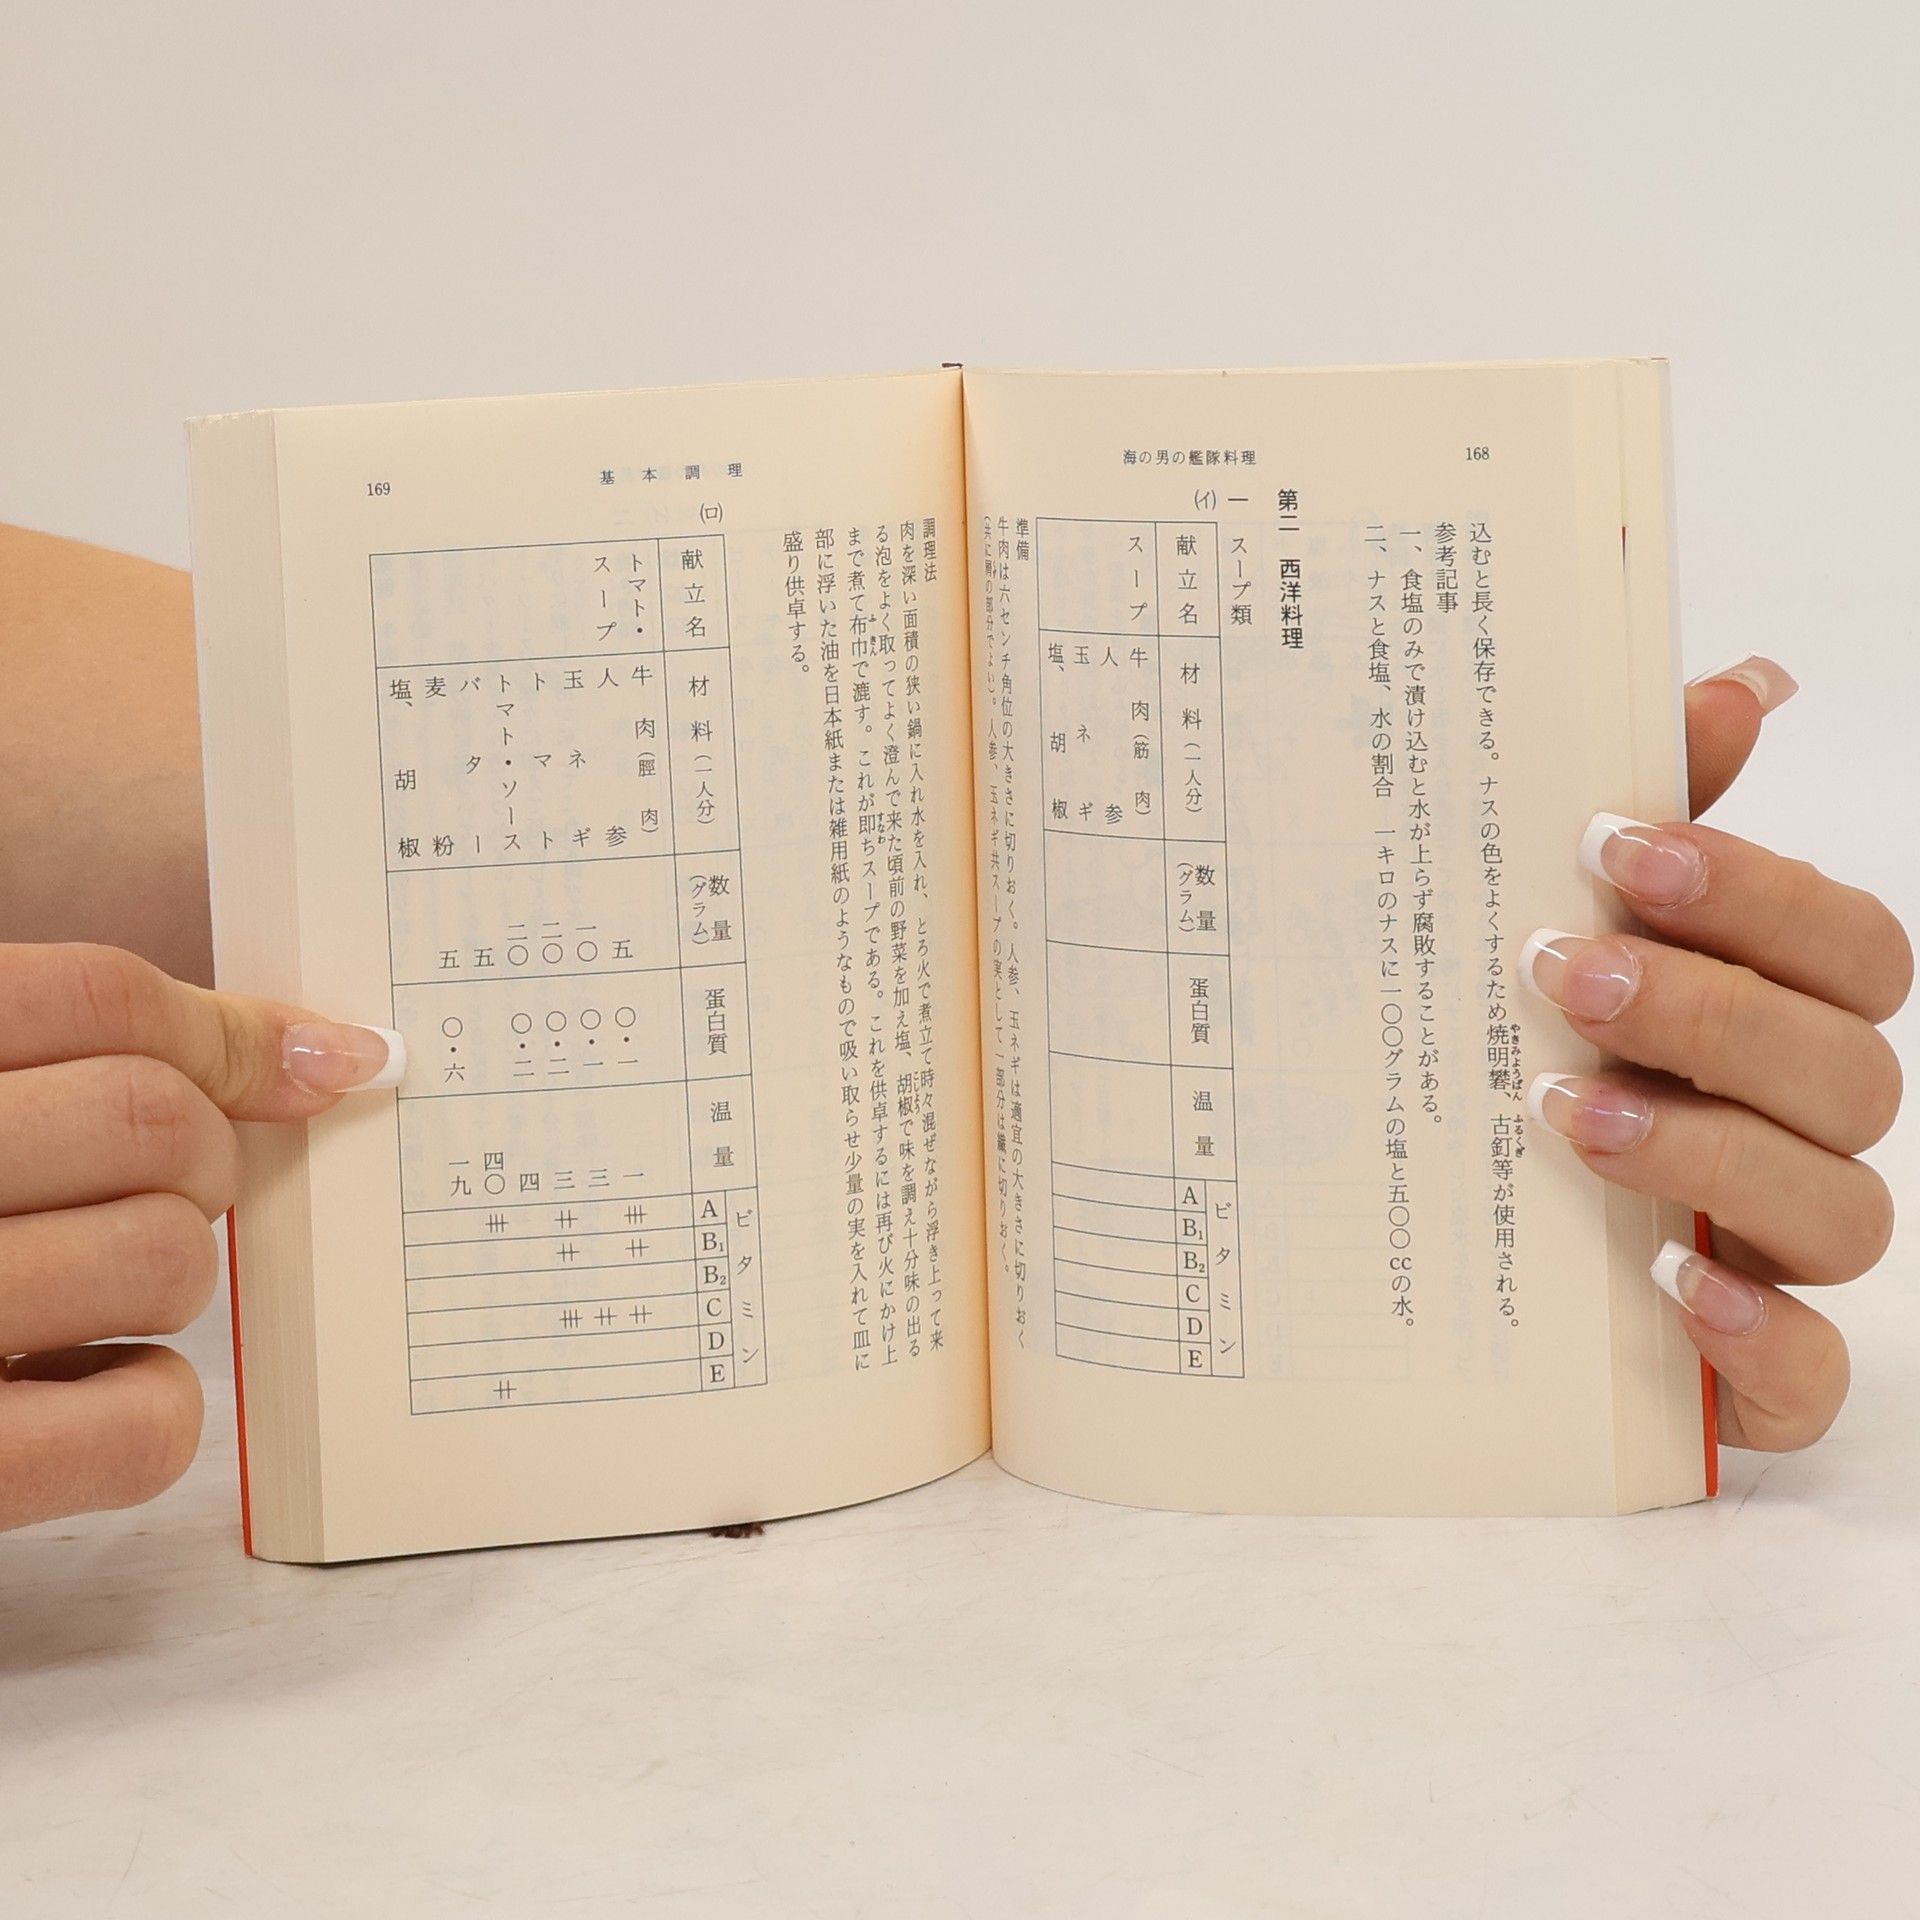 168
海の男の艦隊料理
込むと長く保存できる。ナスの色をよくするため焼明礬、古釘等が使用される。
やきみようばん
ふるくぎ
参考記事
一、食塩のみで漬け込むと水が上らず腐敗することがある。
二、ナスと食塩、水の割合 一キロのナスに一〇〇グラムの塩と五〇〇ccの水。
第二 西洋料理
一 スープ類
(イ)
献立名
材料(一人分)
数量(グラム)
蛋白質
温量
ビタミン
A
B₁
B₂
C
D
E
スープ
牛肉(筋肉)
人参
玉ネギ
塩、胡椒
準備
牛肉は六センチ角位の大きさに切りおく。人参、玉ネギは適宜の大きさに切りおく
(共に屑の部分でよい)。人参、玉ネギ共スープの実として一部分は繊に切りおく。
169
基本調理
調理法
肉を深い面積の狭い鍋に入れ水を入れ、とろ火で煮立て時々混ぜながら浮き上って来
る泡をよく取ってよく澄んで来た頃前の野菜を加え塩、胡椒で味を調え十分味の出る
こしよう
まで煮て布巾で漉す。これが即ちスープである。これを供卓するには再び火にかけ上
ふきん
すなわ
部に浮いた油を日本紙または雑用紙のようなもので吸い取らせ少量の実を入れて皿に
盛り供卓する。
(ロ)
献立名
材料(一人分)
数量(グラム)
蛋白質
温量
ビタミン
A
B₁
B₂
C
D
E
トマト・スープ
牛肉(脛肉) 五 〇・一 一 卅 卄 卄
人参 一〇 〇・一 三 卄
玉ネギ 二〇 〇・二 三 卄 卄 卅
トマト 二〇 〇・二 四
トマト・ソース
バター 五 四〇 卅 卄
麦粉 五 〇・六 一九
塩、胡椒